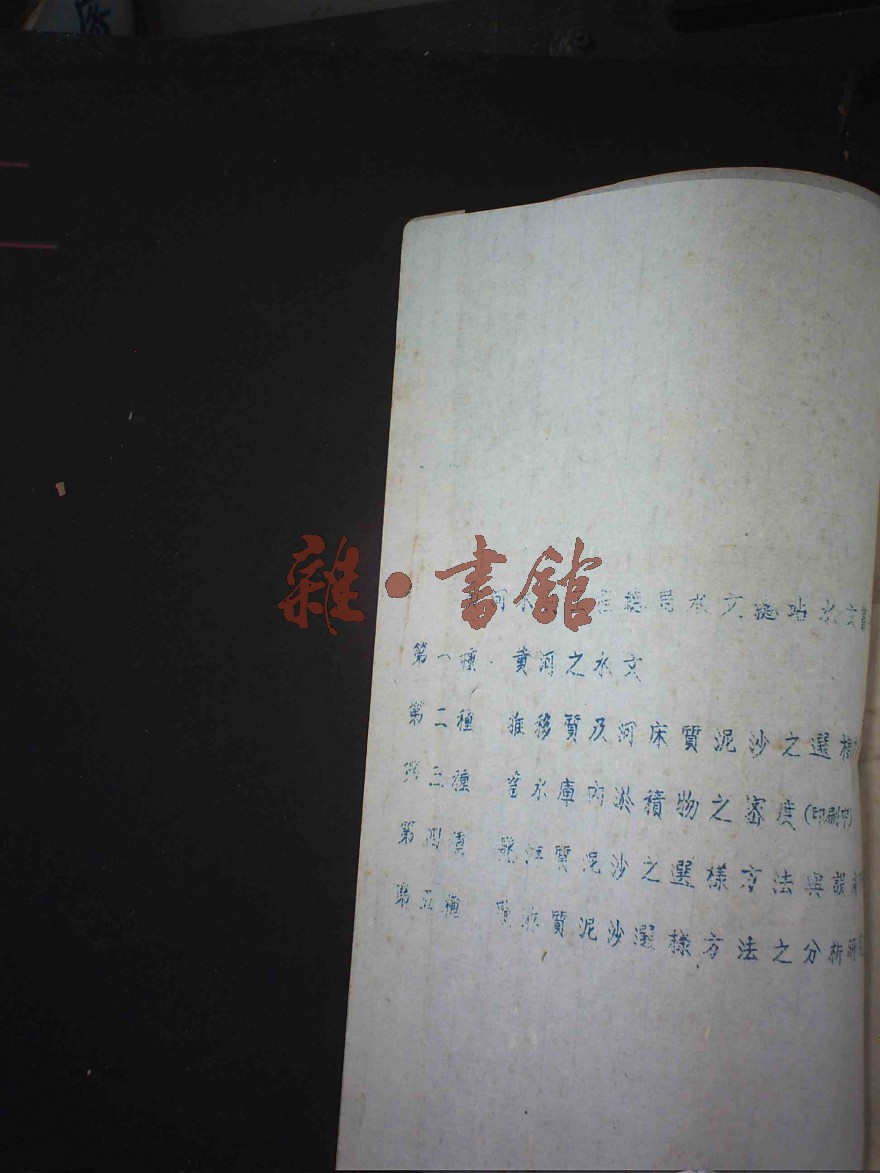 雜·書館
河水總局水文總站水文
第一種 · 黄河之水文
第二種 推移質及河床質泥沙之選樣
第三種 水庫內淤積物之密度(印刷中)
第四種 質泥沙之選樣方法與誤
第五種 質泥沙選樣方法之分析